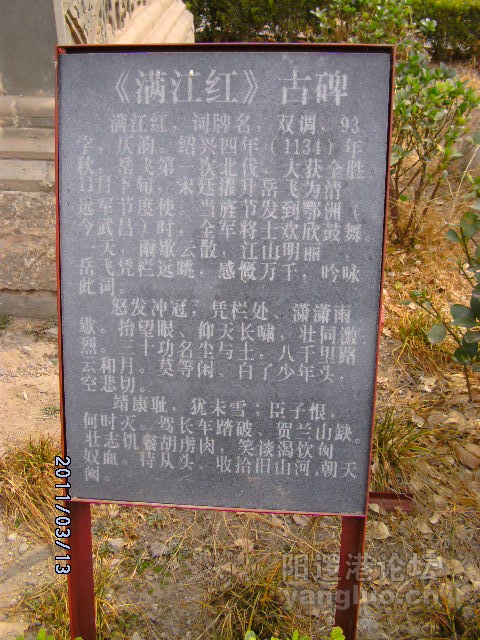 《满江红》古碑
满江红、词牌名，双调、93
字，仄韵。绍兴四年（1134）年
秋，岳飞第一次北伐，大获全胜
11月下旬，宋廷擢升岳飞为清
远军节度使，当旌节发到鄂洲（
今武昌）时，全军将士欢欣鼓舞。
一天，雨歇云散，江山明丽，
岳飞凭栏远眺，感慨万千，吟咏
此词。
怒发冲冠，凭栏处、潇潇雨
歇。抬望眼、仰天长啸，壮同激
烈。三十功名尘与土，八千里路
云和月。莫等闲、白了少年头，
空悲切。
靖康耻，犹未雪；臣子恨，
何时灭。驾长车踏破、贺兰山缺。
壮志饥餐胡虏肉，笑谈渴饮匈
奴血。待从头、收拾旧山河,朝天
阙。
2011/03/13
阳逻港论坛
yangluo.cn